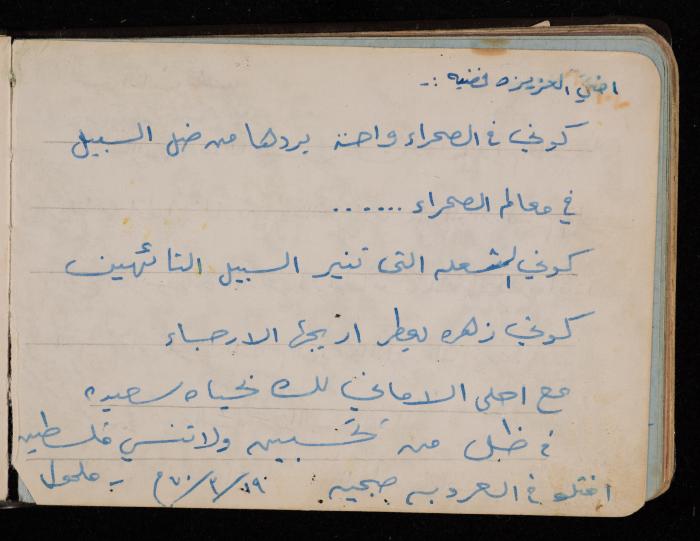 اختي العزيزه فضيه :-
كوني في الصحراء واحة يردها من ضل السبيل
في معالم الصحراء ......
كوني الشعله التى تنير السبيل التائهين
كوني زهره يعطر اريجها الارجاء
مع احلى الاماني لك بحياه سعيده
في ظل من تحبين ولا تنسي فلسطين
اختك في العروبه صبحيه ١٩/٣/٧٠م -